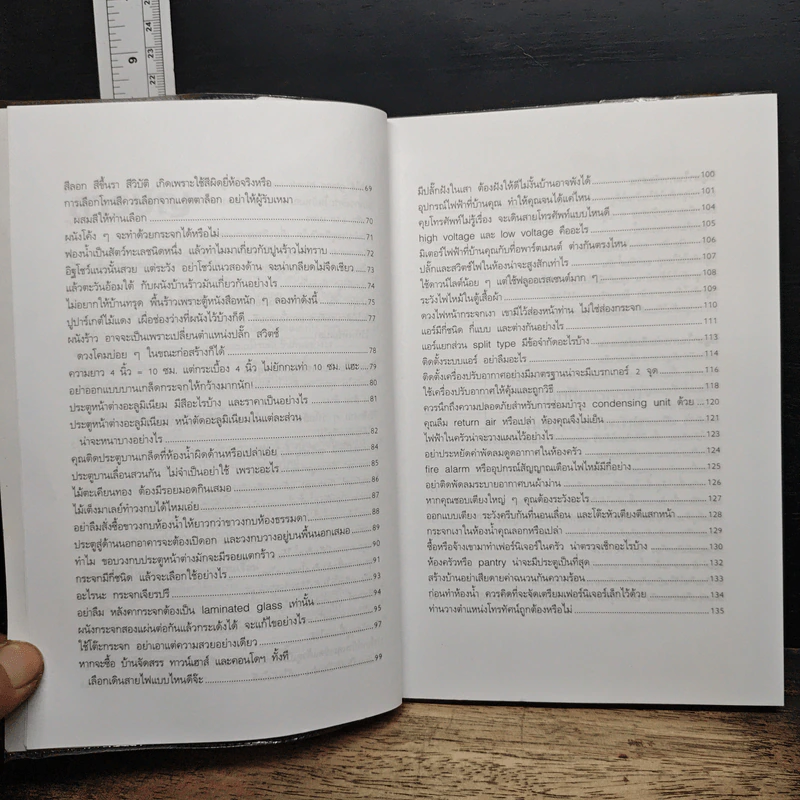 9
22
23
24
สีลอก สีขึ้นรา สีวิบัติ เกิดเพราะใช้สีผิดยี่ห้อจริงหรือ 69
การเลือกโทนสีควรเลือกจากแคตตาล็อก อย่าให้ผู้รับเหมา
ผสมสีให้ท่านเลือก 70
ผนังโค้ง ๆ จะทำด้วยกระจกได้หรือไม่ 71
ฟองน้ำเป็นสัตว์ทะเลชนิดหนึ่ง แล้วทำไมมาเกี่ยวกับปูนร้าวไม่ทราบ 72
อิฐโชว์แนวนั้นสวย แต่ระวัง อย่าโชว์แนวสองด้าน จะน่าเกลียดไม่จืดเชียว 73
แล้วตะวันอ้อมใต้ กับผนังบ้านร้าวมันเกี่ยวกันอย่างไร 74
ไม่อยากให้บ้านทรุด พื้นร้าวเพราะตู้หนังสือหนัก ๆ ลองทำดังนี้ 75
ปูปาร์เกต์ไม้แดง เผื่อช่องว่างที่ผนังไว้บ้างก็ดี 77
ผนังร้าว อาจจะเป็นเพราะเปลี่ยนตำแหน่งปลั๊ก สวิตช์
ดวงโคมบ่อย ๆ ในขณะก่อสร้างก็ได้ 78
ความยาว 4 นิ้ว = 10 ซม. แต่กระเบื้อง 4 นิ้ว ไม่ยักกะเท่า 10 ซม. แฮะ 79
อย่าออกแบบบานเกล็ดกระจกให้กว้างมากนัก! 80
ประตูหน้าต่างอะลูมิเนียม มีสีอะไรบ้าง และราคาเป็นอย่างไร 81
ประตูหน้าต่างอะลูมิเนียม หน้าตัดอะลูมิเนียมในแต่ละส่วน
น่าจะหนาบางอย่างไร 82
คุณติดประตูบานเกล็ดที่ห้องน้ำผิดด้านหรือเปล่าเอ่ย 84
ประตูบานเลื่อนสวนกัน ไม่จำเป็นอย่าใช้ เพราะอะไร 85
ไม้ตะเคียนทอง ต้องมีรอยมอดกินเสมอ 86
ไม้เต็งมาเลย์ทำวงกบได้ไหมเอ่ย 87
อย่าลืมสั่งซื้อขาวงกบห้องน้ำให้ยาวกว่าขาวงกบห้องธรรมดา 88
ประตูสู่ด้านนอกอาคารจะต้องเปิดออก และวงกบวางอยู่บนพื้นนอกเสมอ 89
ทำไม ขอบวงกบประตูหน้าต่างมักจะมีรอยแตกร้าว 90
กระจกมีกี่ชนิด แล้วจะเลือกใช้อย่างไร 91
อะไรนะ กระจกเจียรปรี 93
อย่าลืม หลังคากระจกต้องเป็น laminated glass เท่านั้น 94
ผนังกระจกสองแผ่นต่อกันแล้วกระเด้งได้ จะแก้ไขอย่างไร 95
ใช้โต๊ะกระจก อย่าเอาแต่ความสวยอย่างเดียว 97
หากจะซื้อ บ้านจัดสรร ทาวน์เฮาส์ และคอนโดฯ ทั้งที
เลือกเดินสายไฟแบบไหนดีจ๊ะ 99
มีปลั๊กฝังในเสา ต้องฝังให้ดีไม่งั้นบ้านอาจพังได้ 100
อุปกรณ์ไฟฟ้าที่บ้านคุณ ทำให้คุณจนได้แค่ไหน 101
คุยโทรศัพท์ไม่รู้เรื่อง จะเดินสายโทรศัพท์แบบไหนดี 104
high voltage และ low voltage คืออะไร 105
มิเตอร์ไฟฟ้าที่บ้านคุณกับที่อพาร์ตเมนต์ ต่างกันตรงไหน 106
ปลั๊กและสวิตช์ไฟในห้องน่าจะสูงสักเท่าไร 107
ใช้ดาวน์ไลต์น้อย ๆ แต่ใช้ฟลูออเรสเซนต์มาก ๆ 108
ระวังไฟไหม้ในตู้เสื้อผ้า 109
ดวงไฟหน้ากระจกเงา เขามีไว้ส่องหน้าท่าน ไม่ใช่ส่องกระจก 110
แอร์มีกี่ชนิด กี่แบบ และต่างกันอย่างไร 111
แอร์แยกส่วน split type มีข้อจำกัดอะไรบ้าง 113
ติดตั้งระบบแอร์ อย่าลืมอะไร 114
ติดตั้งเครื่องปรับอากาศอย่างมีมาตรฐานน่าจะมีเบรกเกอร์ 2 จุด 116
ใช้เครื่องปรับอากาศให้คุ้มและถูกวิธี 118
ควรนึกถึงความปลอดภัยสำหรับการซ่อมบำรุง condensing unit ด้วย 120
คุณลืม return air หรือเปล่า ห้องคุณจึงไม่เย็น 121
ไฟฟ้าในครัวน่าจะวางแผนไว้อย่างไร 123
อย่าประหยัดค่าพัดลมดูดอากาศในห้องครัว 124
fire alarm หรืออุปกรณ์สัญญาณเตือนไฟไหม้มีกี่อย่าง 125
อย่าติดพัดลมระบายอากาศบนฝ้าม่าน 126
หากคุณชอบเตียงใหญ่ ๆ คุณต้องระวังอะไร 127
ออกแบบเตียง ระวังครีบกันที่นอนเลื่อน และโต๊ะหัวเตียงตีแสกหน้า 128
กระจกเงาในห้องน้ำคุณลอกหรือเปล่า 129
ซื้อหรือจ้างเขามาทำเฟอร์นิเจอร์ในครัว น่าตรวจเช็กอะไรบ้าง 130
ห้องครัวหรือ pantry น่าจะมีประตูเป็นที่สุด 132
สร้างบ้านอย่าเสียดายค่าฉนวนกันความร้อน 133
ก่อนทำห้องน้ำ ควรคิดที่จะจัดเตรียมเฟอร์นิเจอร์เล็กไว้ด้วย 134
ท่านวางตำแหน่งโทรทัศน์ถูกต้องหรือไม่ 135